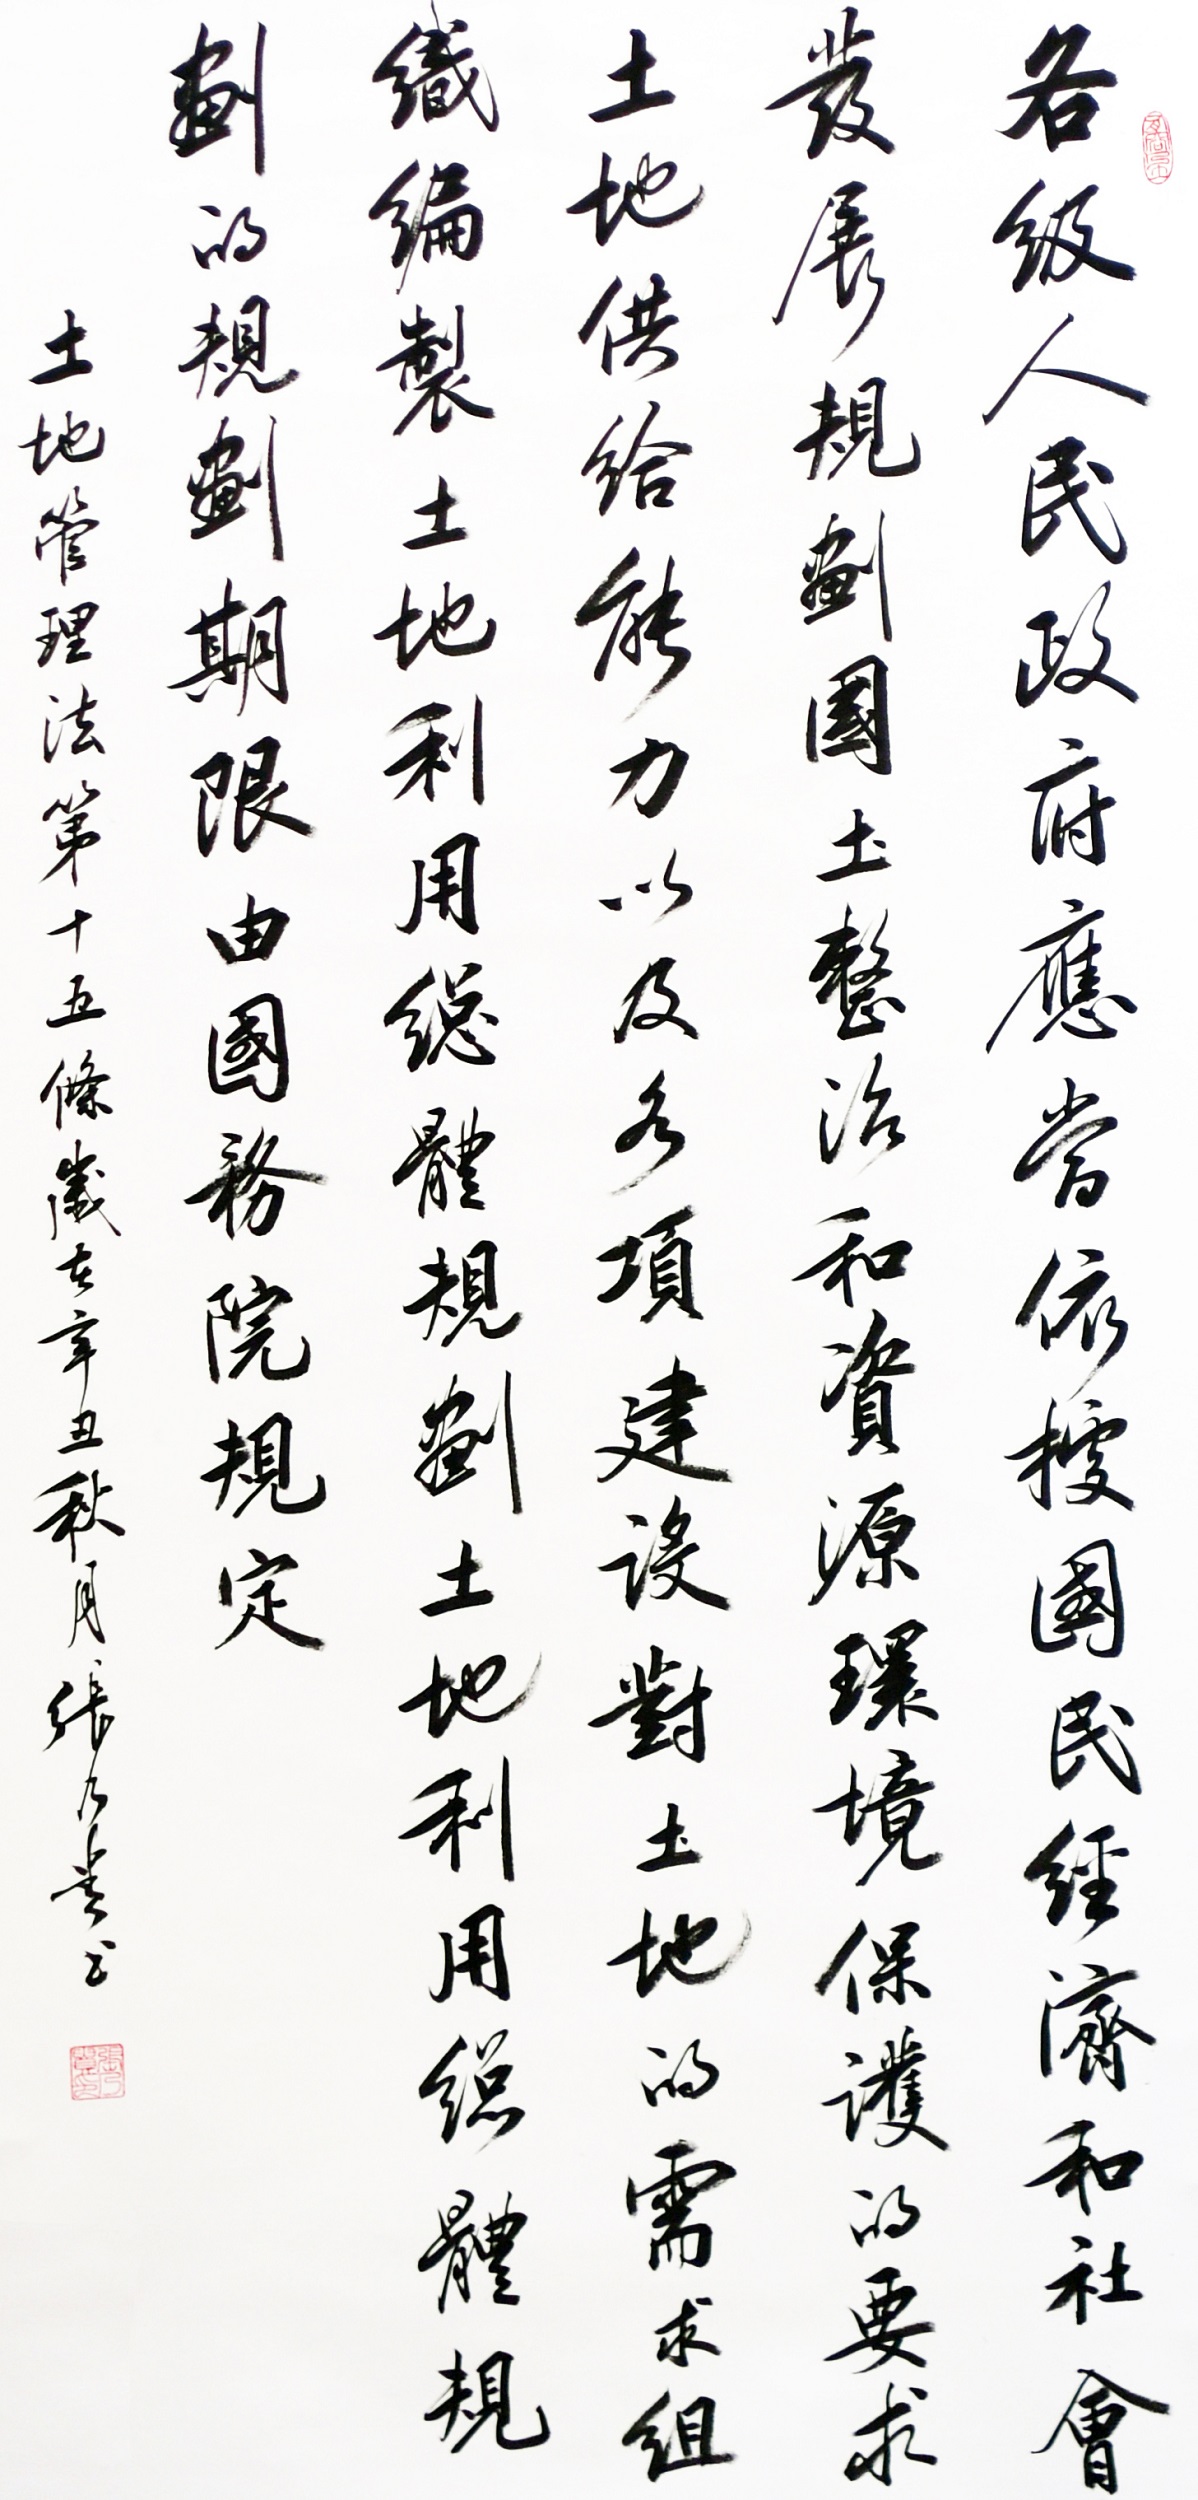 各級人民政府應當依據國民經濟和社會
發展規劃國土整治和資源環境保護的要求
土地供給能力以及各項建設對土地的需求組
織編製土地利用總體規劃土地利用總體規
劃的規劃期限由國務院規定
土地管理法第十五條歲在辛丑秋月張乃貴書